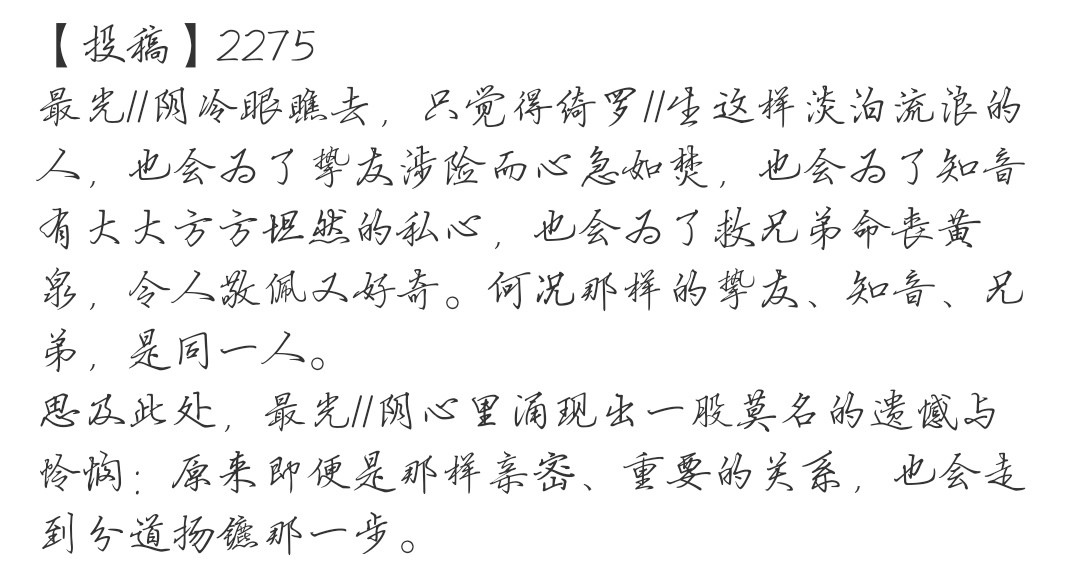 【投稿】2275
最光//阴冷眼瞧去，只觉得绮罗//生这样淡泊流浪的
人，也会为了挚友涉险而心急如焚，也会为了知音
有大大方方坦然的私心，也会为了救兄弟命丧黄
泉，令人敬佩又好奇。何况那样的挚友、知音、兄
弟，是同一人。
思及此处，最光//阴心里涌现出一股莫名的遗憾与
怜悯：原来即便是那样亲密、重要的关系，也会走
到分道扬镳那一步。